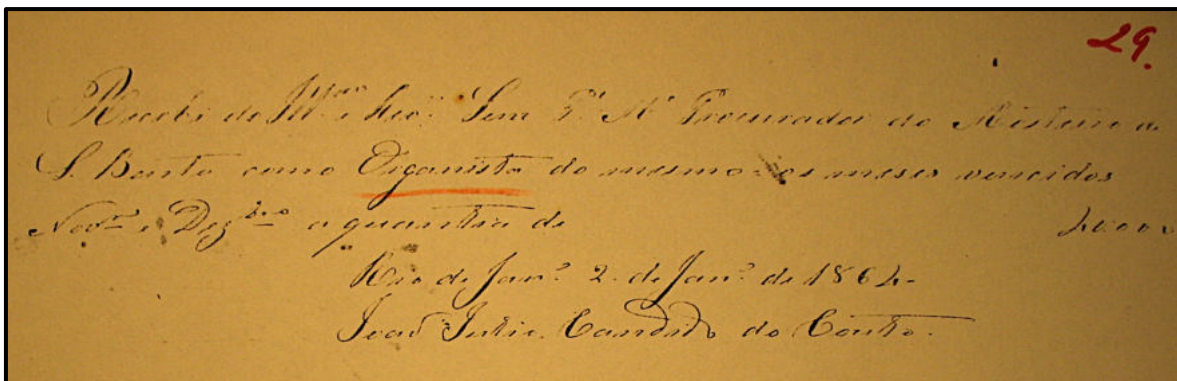 29.
Recebi do Ill.mo e Rev.mo Snr. P.e M.e Procurador do Mosteiro de
S. Bento como Organista do mesmo os meses vencidos
Nov.bro e Dez.bro a quantia de
Rio de Jan.ro 2 de Jan.ro de 1864
João Julio Candido do Couto.